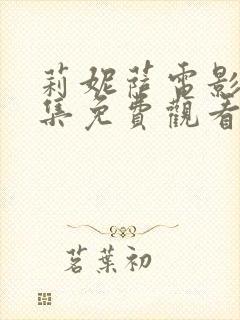 莉妮薩電影
集免費觀看
茗葉初